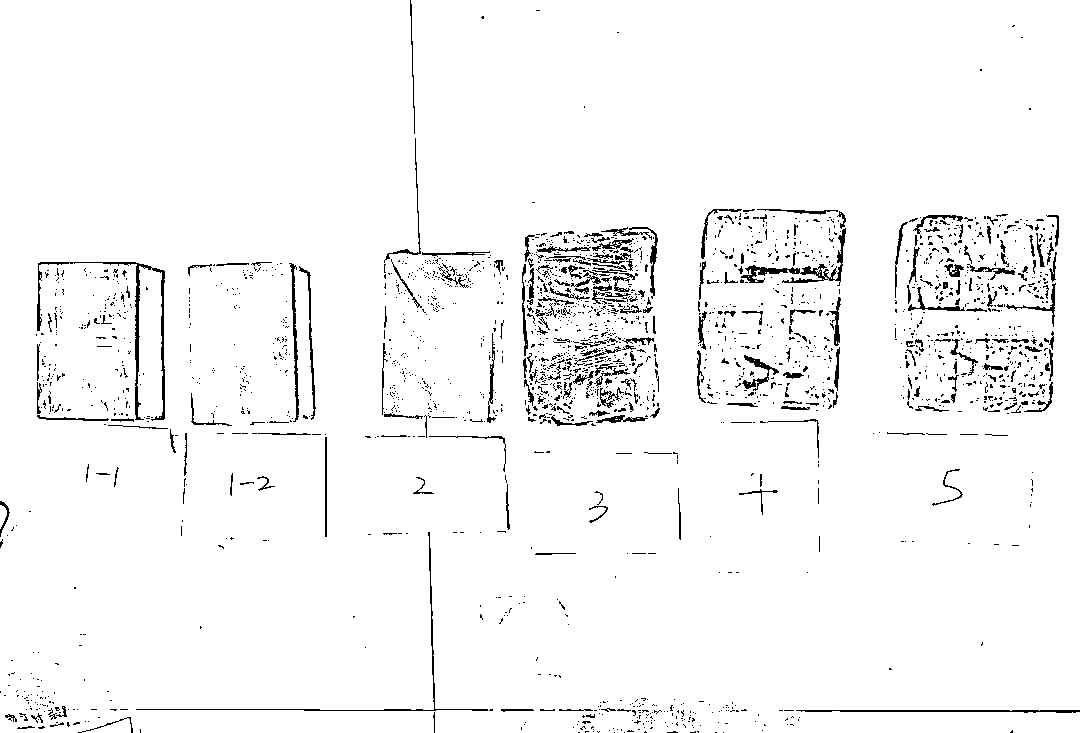 1-1 1-2 2 3 4 5